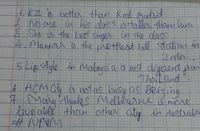 1. RZ is better than Real Madrid
2 No one in his class is taller than him
3 She is the best singer in the class
4. Munnar is the prettiest hill station in
India.
5. Life style in Malaysia is not different from
Thailand.
6 HCM City is not as busy as Beijing
7 Mary thinks Melbourne is more
liveable than other city in Australia
# NTNM